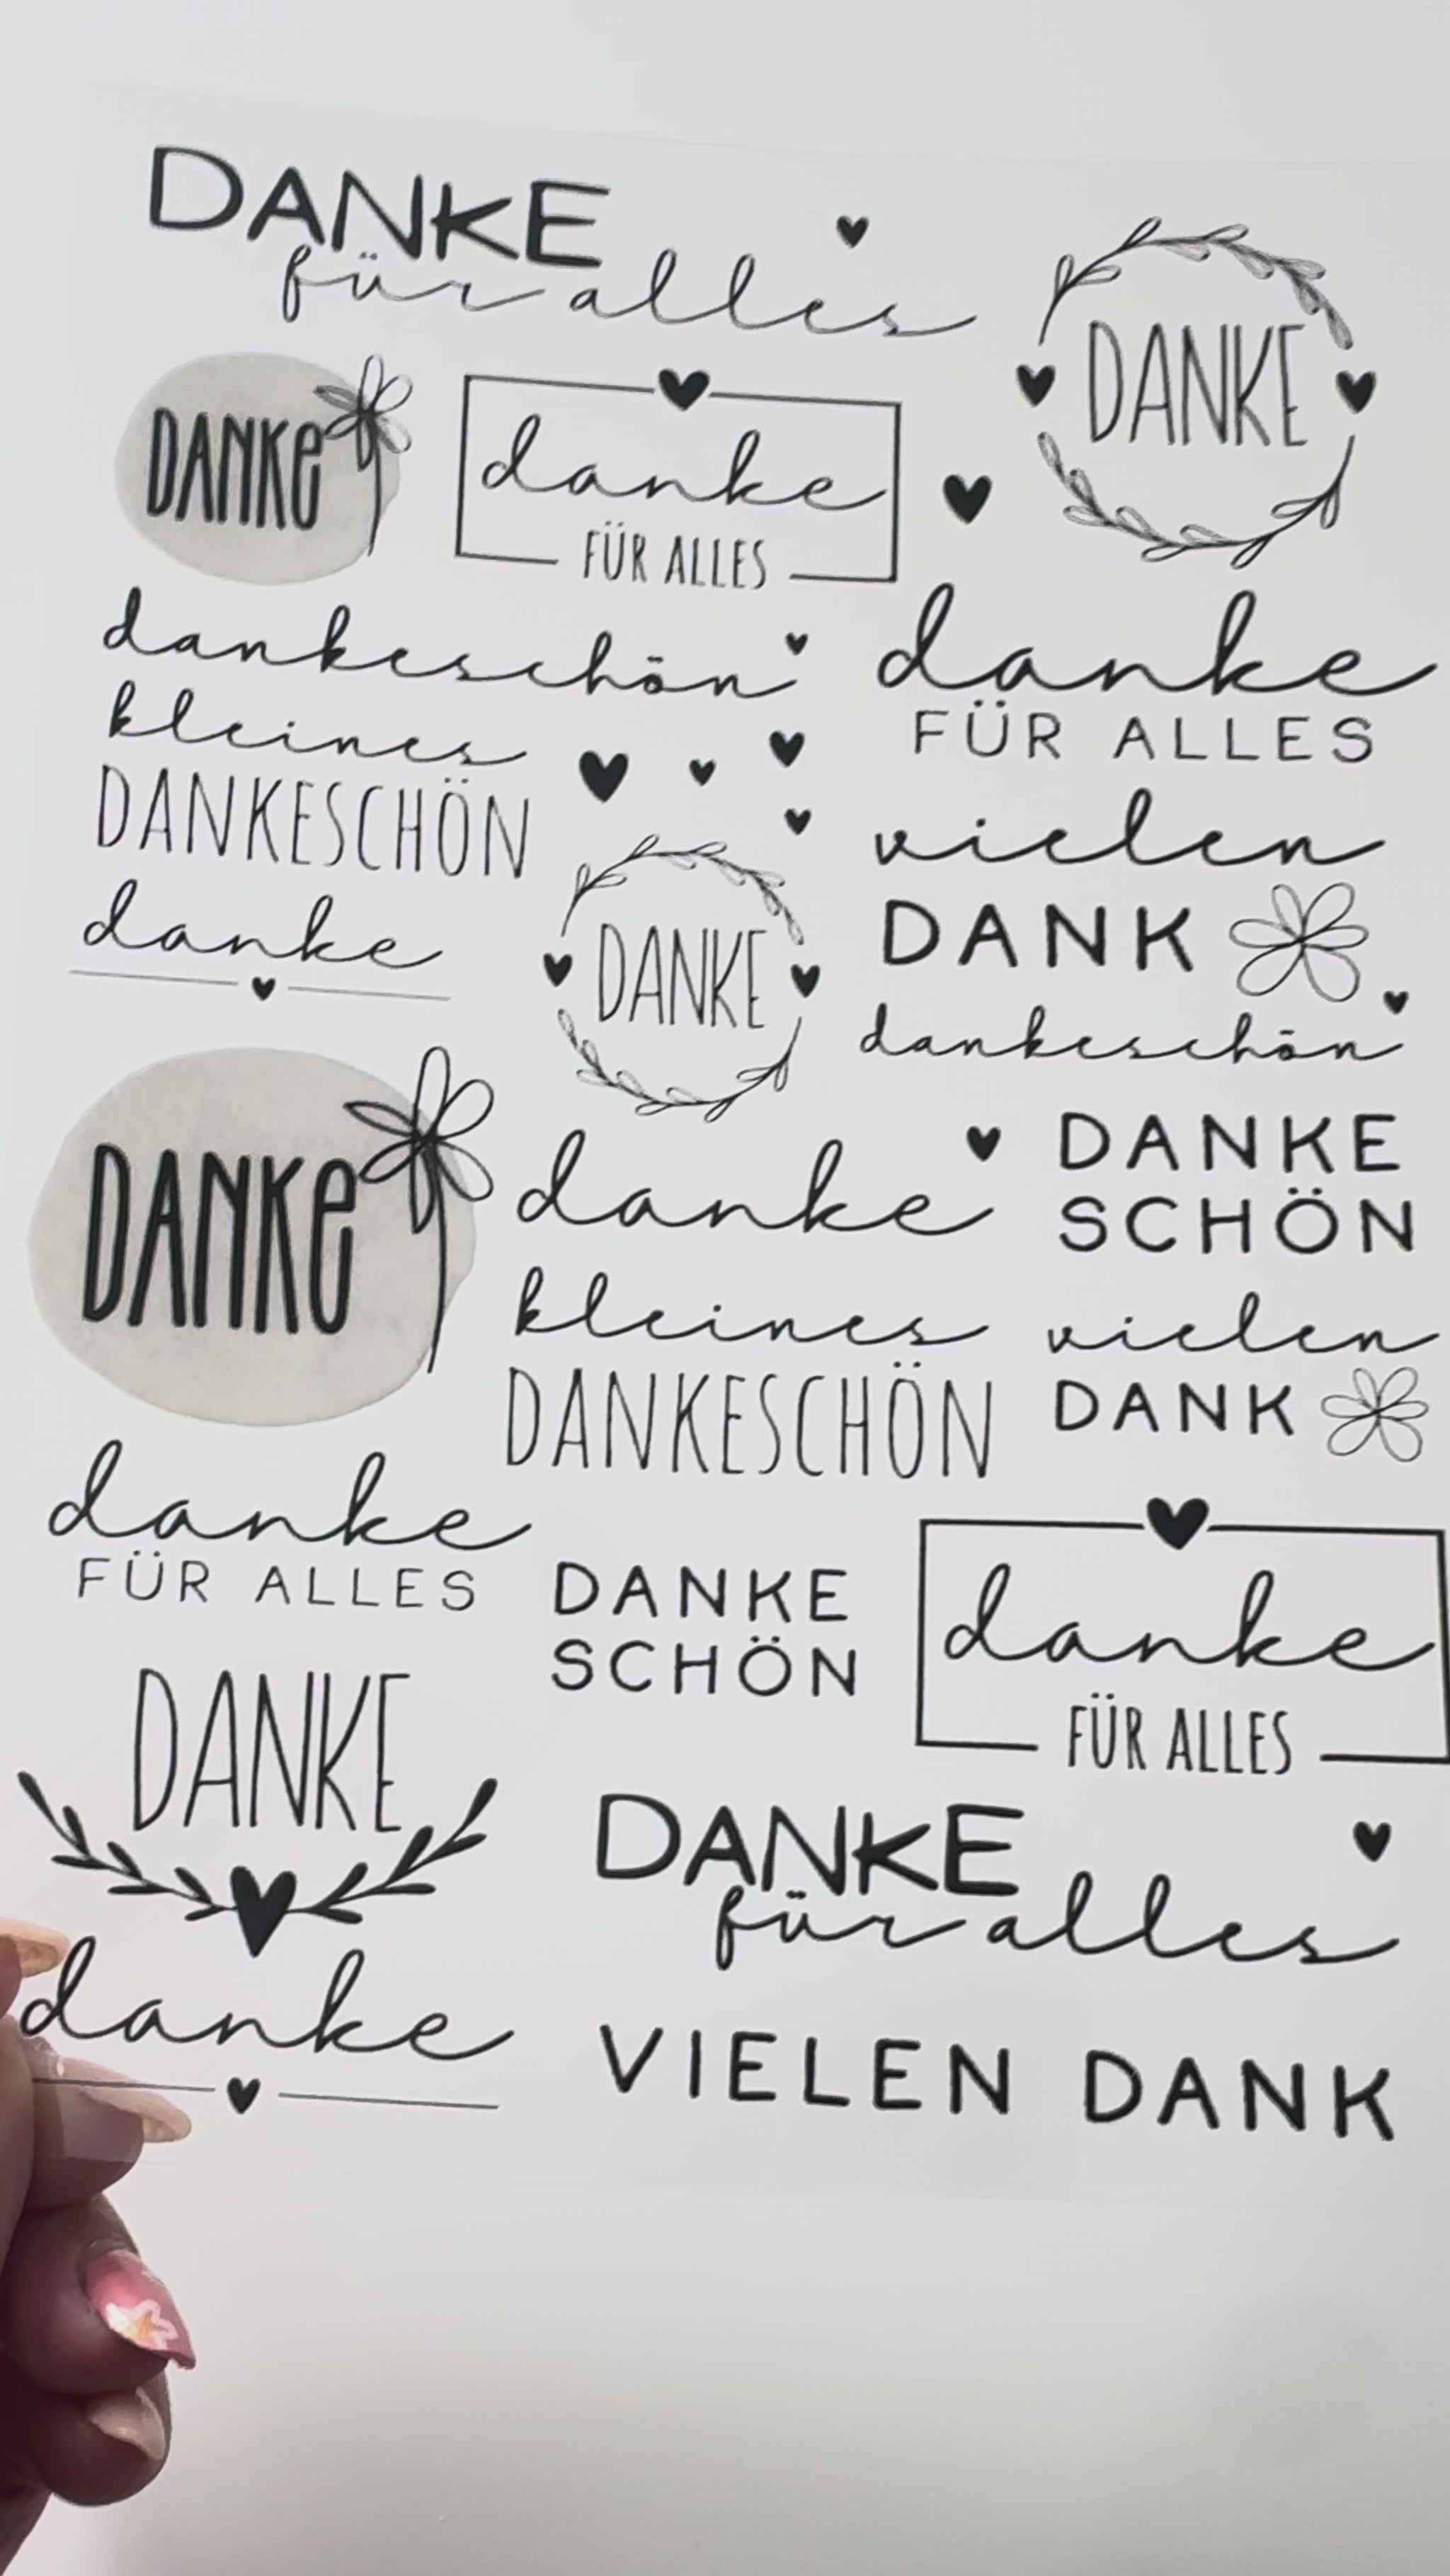 DANKE
für alles
DANKE
DANKe
danke
FÜR ALLES
dankeschön
danke
FÜR ALLES
kleines
DANKESCHÖN
vielen
DANK
danke
DANKE
dankeschön
DANKe
danke
DANKE
SCHÖN
kleines
DANKESCHÖN
vielen
DANK
danke
FÜR ALLES
DANKE
SCHÖN
danke
FÜR ALLES
DANKE
DANKE
für alles
danke
VIELEN DANK